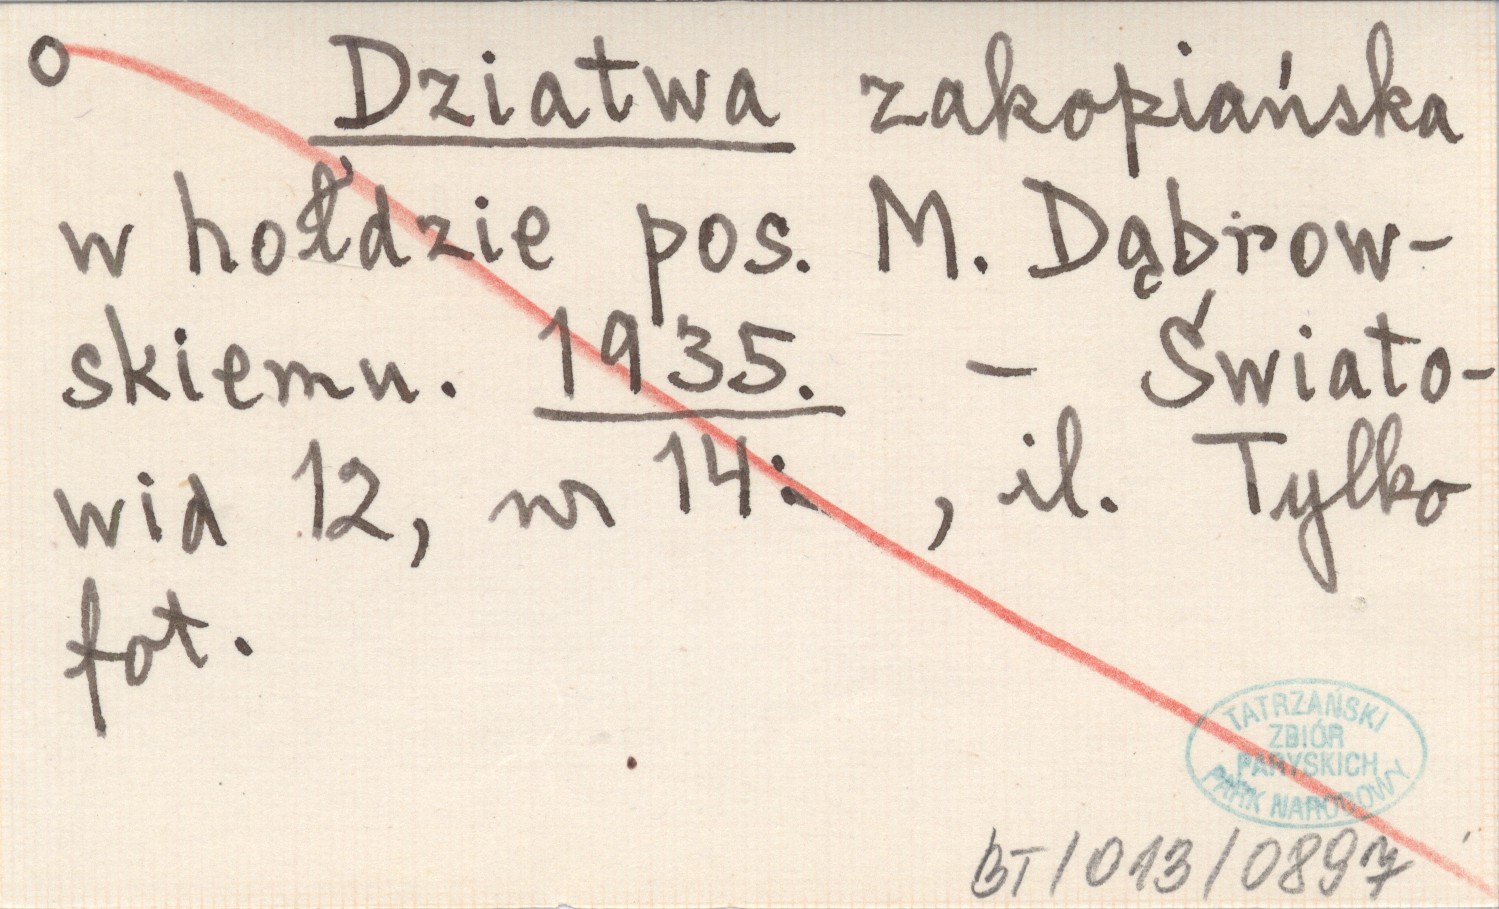 o Dziatwa zakopiańska
w hołdzie pos. M. Dąbrow-
skiemu. 1935. – Świato-
wid 12, nr 14: , il. Tylko
fot.
TATRZAŃSKI
ZBIÓR
PARYSKICH
PARK NARODOWY
BT/013/0897